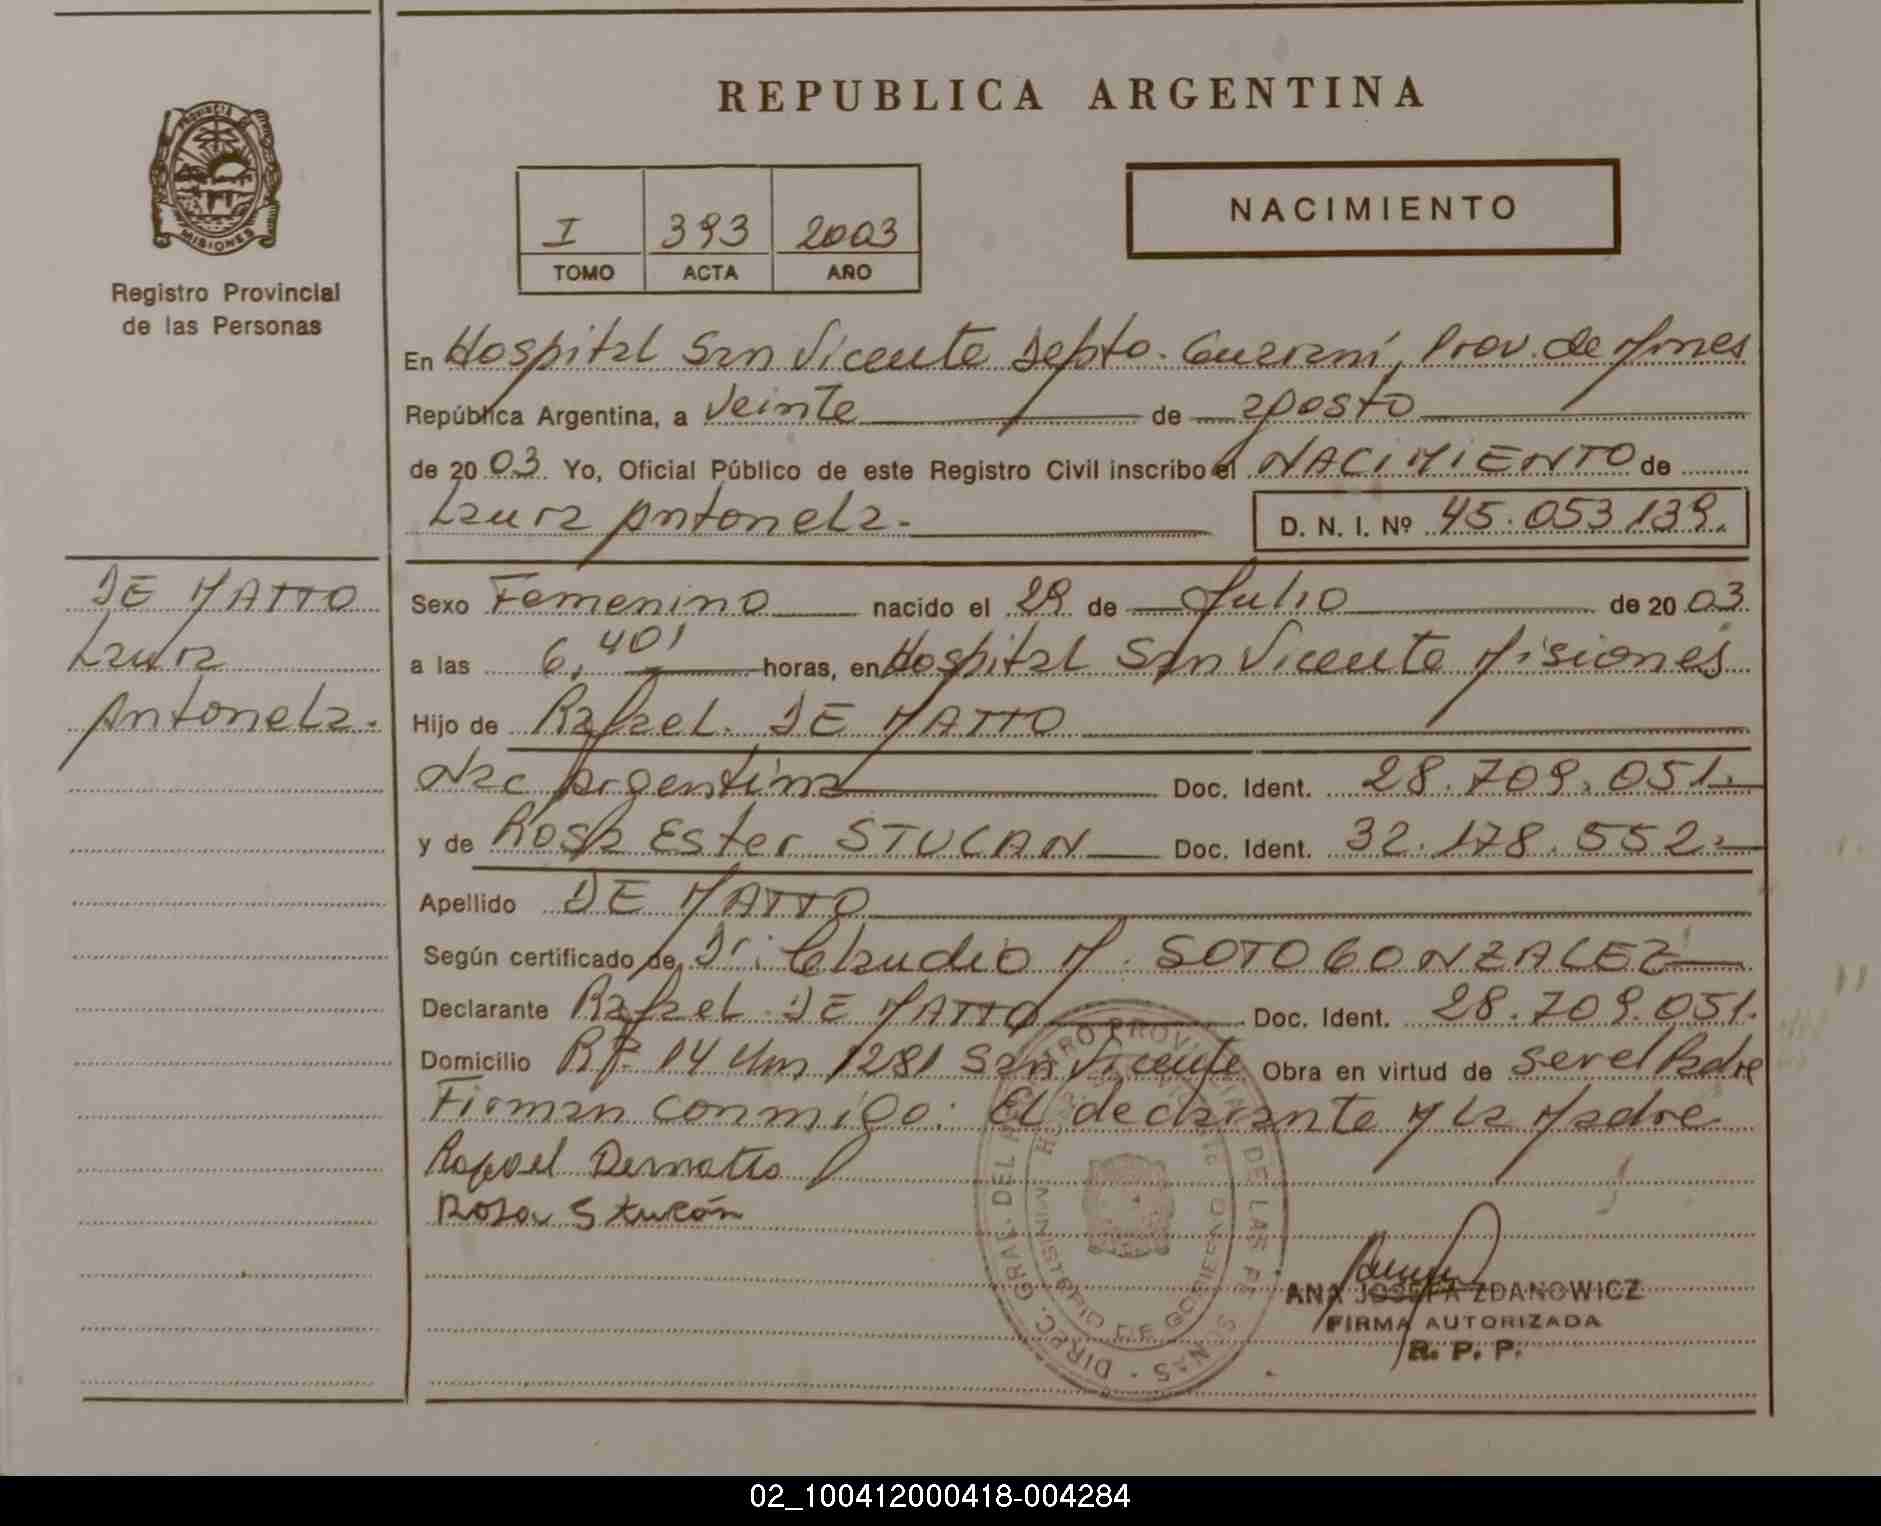 REPUBLICA ARGENTINA
PROVINCIA DE MISIONES
Registro Provincial
de las Personas
I 393 2003
TOMO ACTA AÑO
NACIMIENTO
En Hospital San Vicente Depto. Guaraní, Prov. de Mnes
República Argentina, a Veinte de agosto
de 2003. Yo, Oficial Público de este Registro Civil inscribo el NACIMIENTO de
Laura Antonela.
D. N. I. Nº 45.053.139.
DE MATTO
Laura
Antonela.
Sexo Femenino nacido el 29 de Julio de 2003.
a las 6,40' horas, en Hospital San Vicente Misiones
Hijo de Rafael. DE MATTO
Nac Argentina Doc. Ident. 28.709.051.
y de Rosa Ester STUCAN Doc. Ident. 32.178.552.
Apellido DE MATTO
Según certificado de Dr: Claudio M. SOTO GONZALEZ
Declarante Rafael DE MATTO Doc. Ident. 28.709.051.
Domicilio RP. 14 Km 1281 San Vicente Obra en virtud de ser el Padre
Firman conmigo: El declarante y la Madre
Rafael Dematto
Rosa Stucán
DIREC. GRAL. DEL REGISTRO PROVINCIAL DE LAS PERSONAS
MINISTERIO DE GOBIERNO
ANA JOSEFA ZDANOWICZ
FIRMA AUTORIZADA
R. P. P.
02_100412000418-004284